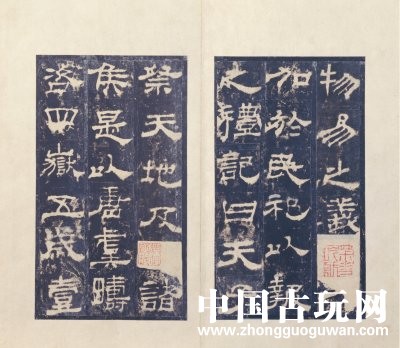 物易之義
加於民祀以報
之禮記曰天
祭天地及諸
侯是以唐虞疇
咨四嶽五歲壹
中国古玩网
www.zhongguoguwan.com